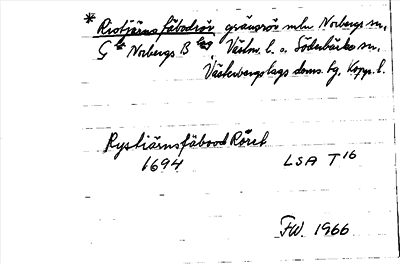 * Riotjärns fäbodrör gränsrör mln Norbergs sn,
G:la Norbergs Bslag Västm. l. o. Söderbärke sn,
Västerbergslags doms. tg, Kopp. l.
Rystiärnsfäbood Röret
1694 LSA T 16
FW. 1966